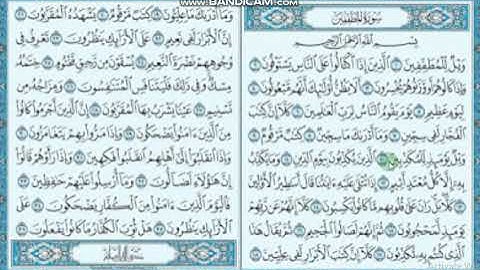 WWW.BANDICAM.COM
سُورَةُ المُطَفِّفِينَ
بِسْمِ اللَّهِ الرَّحْمَٰنِ الرَّحِيمِ
وَيْلٌ لِّلْمُطَفِّفِينَ ١ الَّذِينَ إِذَا اكْتَالُوا عَلَى النَّاسِ يَسْتَوْفُونَ ٢
وَإِذَا كَالُوهُمْ أَو وَّزَنُوهُمْ يُخْسِرُونَ ٣ أَلَا يَظُنُّ أُولَٰئِكَ أَنَّهُم مَّبْعُوثُونَ ٤
لِيَوْمٍ عَظِيمٍ ٥ يَوْمَ يَقُومُ النَّاسُ لِرَبِّ الْعَالَمِينَ ٦ كَلَّا إِنَّ كِتَابَ
الْفُجَّارِ لَفِي سِجِّينٍ ٧ وَمَا أَدْرَاكَ مَا سِجِّينٌ ٨ كِتَابٌ مَّرْقُومٌ ٩
وَيْلٌ يَوْمَئِذٍ لِّلْمُكَذِّبِينَ ١٠ الَّذِينَ يُكَذِّبُونَ بِيَوْمِ الدِّينِ ١١ وَمَا يُكَذِّبُ
بِهِ إِلَّا كُلُّ مُعْتَدٍ أَثِيمٍ ١٢ إِذَا تُتْلَىٰ عَلَيْهِ آيَاتُنَا قَالَ أَسَاطِيرُ الْأَوَّلِينَ
١٣ كَلَّا بَلْ رَانَ عَلَىٰ قُلُوبِهِم مَّا كَانُوا يَكْسِبُونَ ١٤ كَلَّا إِنَّهُمْ عَن رَّبِّهِمْ
يَوْمَئِذٍ لَّمَحْجُوبُونَ ١٥ ثُمَّ إِنَّهُمْ لَصَالُو الْجَحِيمِ ١٦ ثُمَّ يُقَالُ هَٰذَا
الَّذِي كُنتُم بِهِ تُكَذِّبُونَ ١٧ كَلَّا إِنَّ كِتَابَ الْأَبْرَارِ لَفِي عِلِّيِّينَ ١٨
وَمَا أَدْرَاكَ مَا عِلِّيُّونَ ١٩ كِتَابٌ مَّرْقُومٌ ٢٠ يَشْهَدُهُ الْمُقَرَّبُونَ ٢١
إِنَّ الْأَبْرَارَ لَفِي نَعِيمٍ ٢٢ عَلَى الْأَرَائِكِ يَنظُرُونَ ٢٣ تَعْرِفُ فِي
وُجُوهِهِمْ نَضْرَةَ النَّعِيمِ ٢٤ يُسْقَوْنَ مِن رَّحِيقٍ مَّخْتُومٍ ٢٥ خِتَامُهُ
مِسْكٌ وَفِي ذَٰلِكَ فَلْيَتَنَافَسِ الْمُتَنَافِسُونَ ٢٦ وَمِزَاجُهُ مِن
تَسْنِيمٍ ٢٧ عَيْنًا يَشْرَبُ بِهَا الْمُقَرَّبُونَ ٢٨ إِنَّ الَّذِينَ أَجْرَمُوا كَانُوا
مِنَ الَّذِينَ آمَنُوا يَضْحَكُونَ ٢٩ وَإِذَا مَرُّوا بِهِمْ يَتَغَامَزُونَ ٣٠
وَإِذَا انقَلَبُوا إِلَىٰ أَهْلِهِمُ انقَلَبُوا فَكِهِينَ ٣١ وَإِذَا رَأَوْهُمْ قَالُوا
إِنَّ هَٰؤُلَاءِ لَضَالُّونَ ٣٢ وَمَا أُرْسِلُوا عَلَيْهِمْ حَافِظِينَ ٣٣
فَالْيَوْمَ الَّذِينَ آمَنُوا مِنَ الْكُفَّارِ يَضْحَكُونَ ٣٤ عَلَى
الْأَرَائِكِ يَنظُرُونَ ٣٥ هَلْ ثُوِّبَ الْكُفَّارُ مَا كَانُوا يَفْعَلُونَ ٣٦